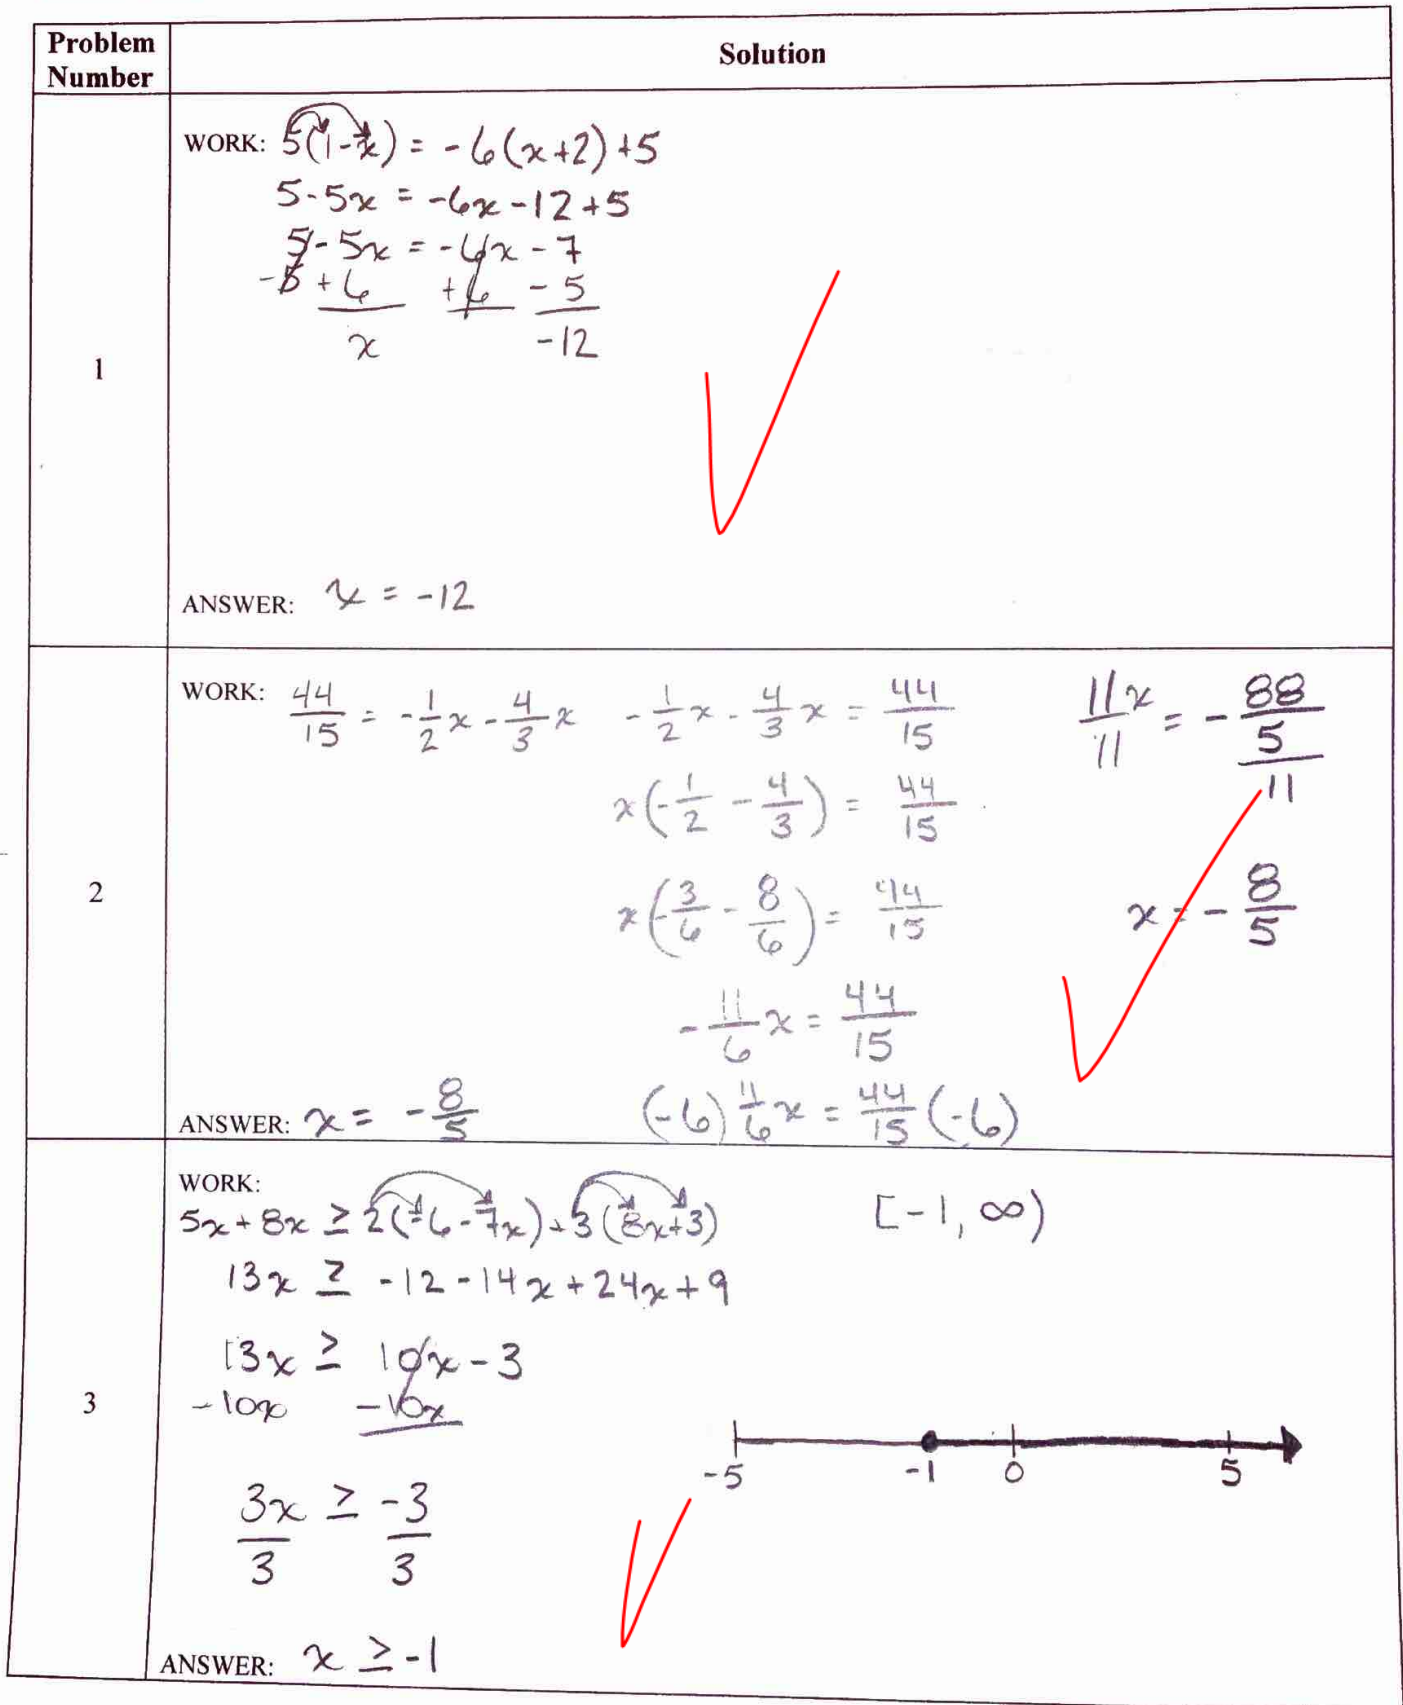 Problem Number
Solution
1
WORK: 5(1-x) = -6(x+2)+5
5-5x = -6x-12+5
5-5x = -6x-7
-5 +6 +6 -5
x -12
ANSWER: x = -12
2
WORK: 44/15 = -1/2x - 4/3x
-1/2x - 4/3x = 44/15
x(-1/2 - 4/3) = 44/15
x(-3/6 - 8/6) = 44/15
-11/6x = 44/15
(-6) 11/6x = 44/15 (-6)
11x/11 = -88/5/11
x = -8/5
ANSWER: x = -8/5
3
WORK:
5x+8x ≥ 2(-6-7x)+3(8x+3)
13x ≥ -12-14x+24x+9
13x ≥ 10x-3
-10x -10x
3x/3 ≥ -3/3
[-1, ∞)
-5 -1 0 5
ANSWER: x ≥ -1